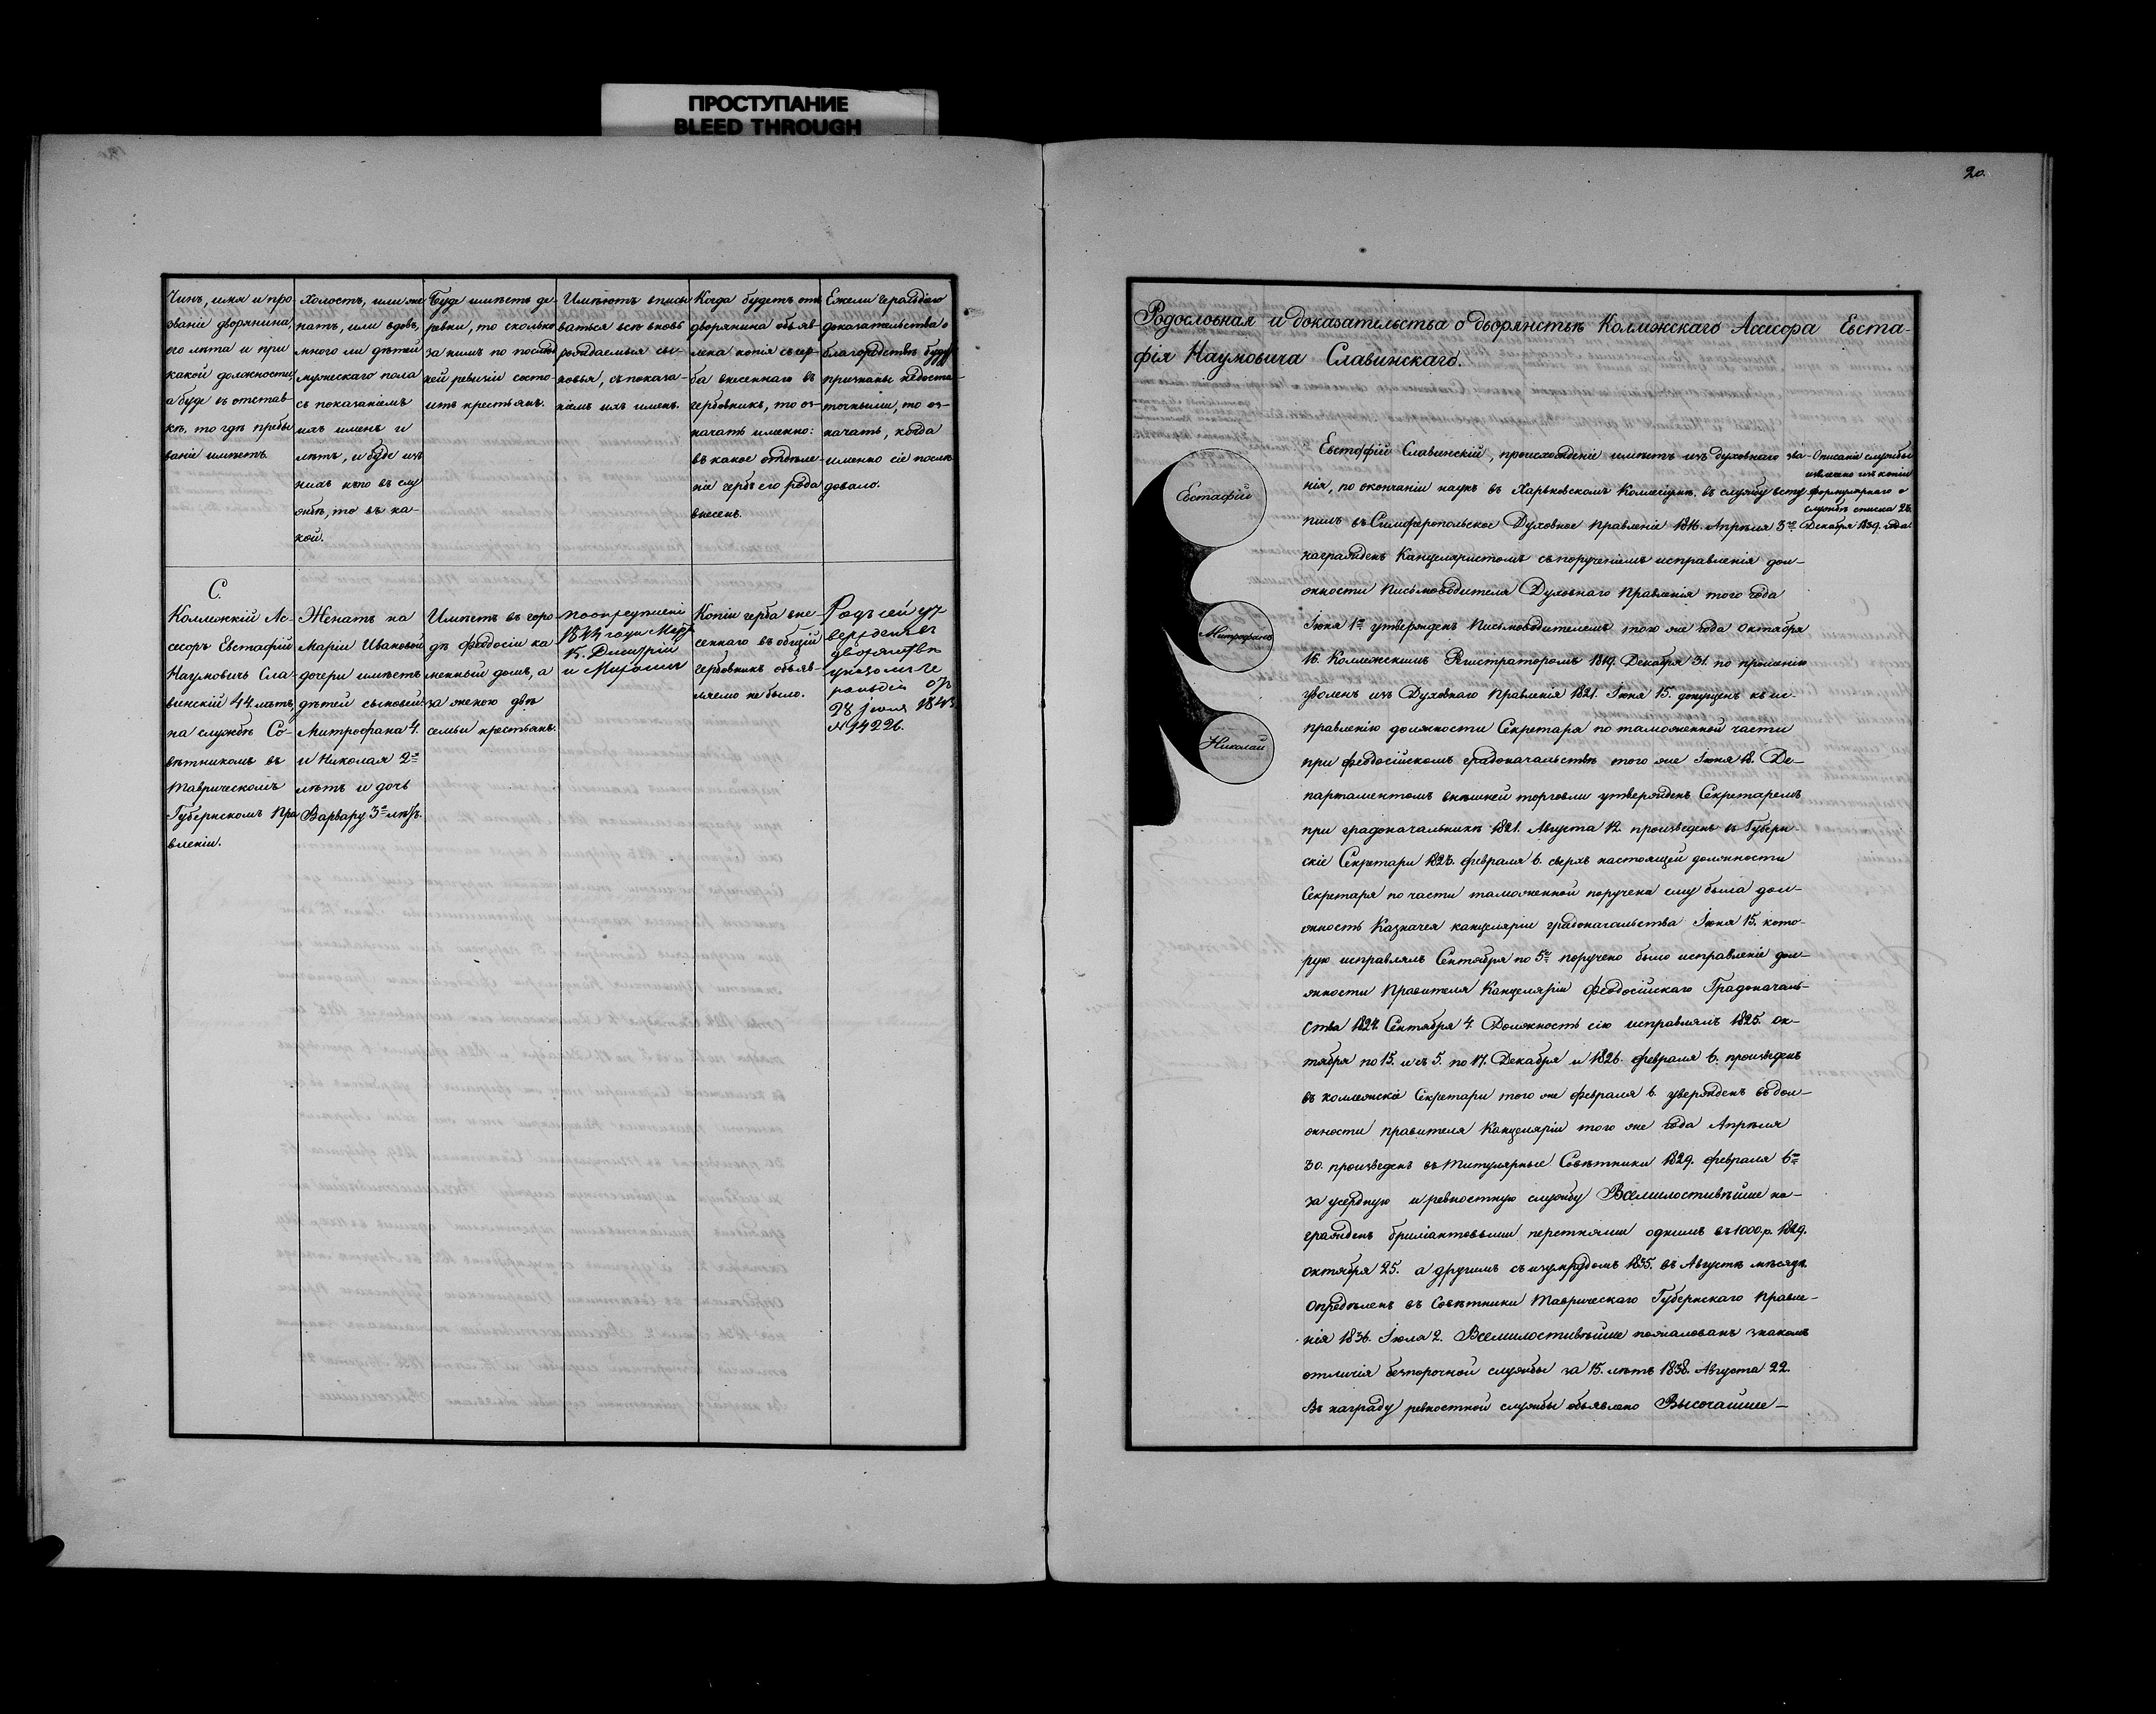 ПРОСТУПАНИЕ
BLEED THROUGH
20.
Чинъ, имя и про-
званіе дворянина,
его лѣта и при
какой должности,
а буде въ отстав-
кѣ, то гдѣ пребы
ваніе имѣетъ.
Холостъ, или же
натъ, или вдовъ,
много ли дѣтей
мужескаго пола
съ показаніемъ
ихъ именъ и
лѣтъ, и буде изъ
нихъ кто въ слу
жбѣ, то въ ка-
кой.
Буде имѣетъ де-
ревни, то сколько
за нимъ по послѣд
ней ревизіи состо-
итъ крестьянъ.
Имѣютъ вписы
ваться всѣ вновь
рождаемыя сы-
новья, съ показа-
ніемъ ихъ именъ.
Когда будетъ отъ
дворянина объяв-
лена копія съ гер-
ба внесеннаго въ
гербовникъ, то оз-
начать именно:
въ какое отдѣле-
ніе гербъ его рода
внесенъ.
Ежели Герольдіею
доказательства о
благородствѣ будутъ
признаны недоста-
точными, то оз-
начать, когда
именно сіе послѣ
довало.
С.
Колежкій Ас-
сесоръ Евстафій
Наумовичь Сла-
винскій 44 лѣтъ,
на службѣ Со-
вѣтникомъ въ
Таврическомъ
Губернскомъ Пра
вленіи.
Женатъ на
Маріи Ивановой
дочери имѣетъ
дѣтей сыновей:
Митрофана 4.
и Николая 2-хъ
лѣтъ и дочь
Варвару 3-хъ лѣтъ.
Имѣетъ въ горо
дѣ Феодосіи ка-
менный домъ, а
за женою двѣ
семьи крестьянъ.
по опредѣленію
1844 года Март
15. Дмитрій
и
Копіи герба вне
сеннаго въ общій
Гербовникъ объяв-
ляемо не было.
Родъ сей ут
вержденъ въ
дворянствѣ
указомъ Ге
рольдіи отъ
28 Іюля 1843
№ 14226.
Родословная и доказательства о дворянствѣ Колежскаго Асесора Евста-
фія Наумовича Славинскаго.
Евстафій
Митрофанъ
Николай
Евстафій Славинскій, происхожденіе имѣетъ изъ духовнаго зва-
нія, по окончаніи наукъ въ Харьковскомъ Коллегіумѣ, въ службу всту
пилъ въ Симферопольское Духовное Правленіе 1816. Апрѣля 3-го
награжденъ Канцеляристомъ съ порученіемъ исправленія дол-
жности Письмоводителя Духовнаго Правленія того года
Іюня 1-го утвержденъ Письмоводителемъ того же года Октября
16. Колежскимъ Регистраторомъ 1819. Декабря 31. по прошенію
уволенъ изъ Духовнаго Правленія 1821. Іюня 15. допущенъ къ ис-
правленію должности Секретаря по таможенной части
при Феодосійскомъ градоначальствѣ того же Іюня 18. Де-
партаментомъ внѣшней торговли утвержденъ Секретаремъ
при градоначальникѣ 1821. Августа 12. произведенъ въ Губерн-
скіе Секретари 1823. февраля 6. сверхъ настоящей должности
Секретаря по части таможенной поручена ему была дол-
жность Казначея канцеляріи градоначальства Іюня 15. кото-
рую исправлялъ Сентября по 5-е поручено было исправленіе дол-
жности Правителя Канцеляріи Феодосійскаго Градоначаль-
ства 1824. Сентября 4. Должность сію исправлялъ 1825. ок-
тября по 15. и съ 5. по 17. Декабря и 1826. февраля 6. произведенъ
въ колежскіе Секретари того же февраля 6. утвержденъ въ дол-
жности правителя Канцеляріи того же года Апрѣля
30. произведенъ въ Титулярные Совѣтники 1829. февраля 6-го
за усердную и ревностную службу Всемилостивѣйше на-
гражденъ бриліантовыми перстнями однимъ въ 1000.р. 1829.
октября 25. а другимъ съ изумрудомъ 1835. въ Августѣ мѣсяцѣ.
Опредѣленъ въ Совѣтники Таврическаго Губернскаго Правле-
нія 1836. Іюля 2. Всемилостивѣйше пожалованъ знакомъ
отличія безпорочной службы за 15. лѣтъ 1838. Августа 22.
Въ награду ревностной службы объявлено Высочайшее
Описаніе службы
извлечено изъ копіи
формулярнаго о
службѣ списка 28.
Декабря 1839. года.